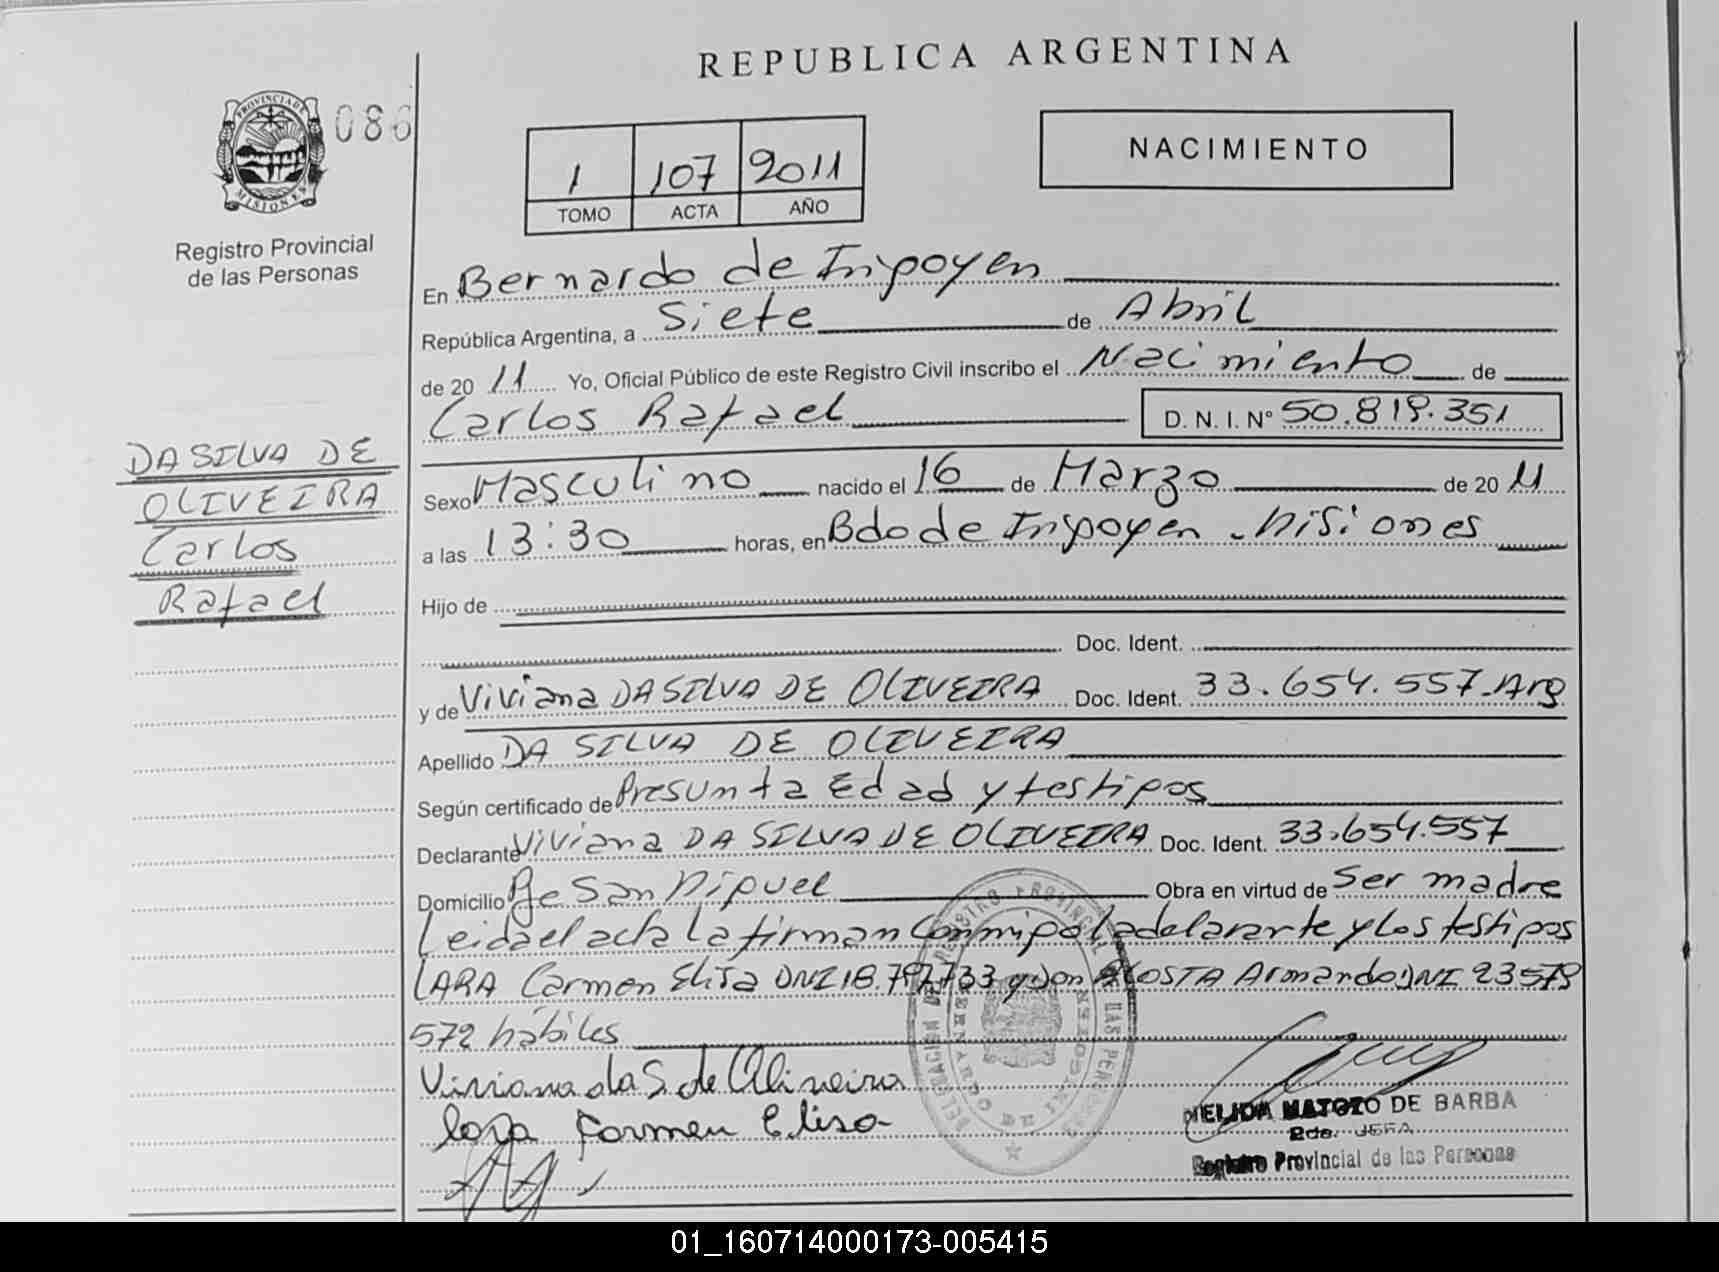 REPUBLICA ARGENTINA
PROVINCIA DE
MISIONES
086
Registro Provincial
de las Personas
1 107 2011
TOMO ACTA AÑO
NACIMIENTO
DA SILVA DE
OLIVEIRA
Carlos
Rafael
En Bernardo de Irigoyen
República Argentina, a Siete de Abril
de 20 11 Yo, Oficial Público de este Registro Civil inscribo el Nacimiento de
Carlos Rafael D.N.I. Nº 50.819.351
Sexo Masculino nacido el 16 de Marzo de 20 11
a las 13:30 horas, en Bdo de Irigoyen - Misiones
Hijo de
Doc. Ident.
y de Viviana DA SILVA DE OLIVEIRA Doc. Ident. 33.654.557 Arg
Apellido DA SILVA DE OLIVEIRA
Según certificado de Presunta Edad y testigos
Declarante Viviana DA SILVA DE OLIVEIRA Doc. Ident. 33.654.557
Domicilio San Miguel Obra en virtud de Ser madre
Leida el acta la firman conmigo la declarante y los testigos
LARA Carmen Elisa DNI 18.797.733 y Don ACOSTA Armando DNI 23579
572 hábiles
Viviana da S. de Oliveira
Lara Carmen Elisa
NELIDA MATOZO DE BARBA
2da. JEFA
Registro Provincial de las Personas
01_160714000173-005415